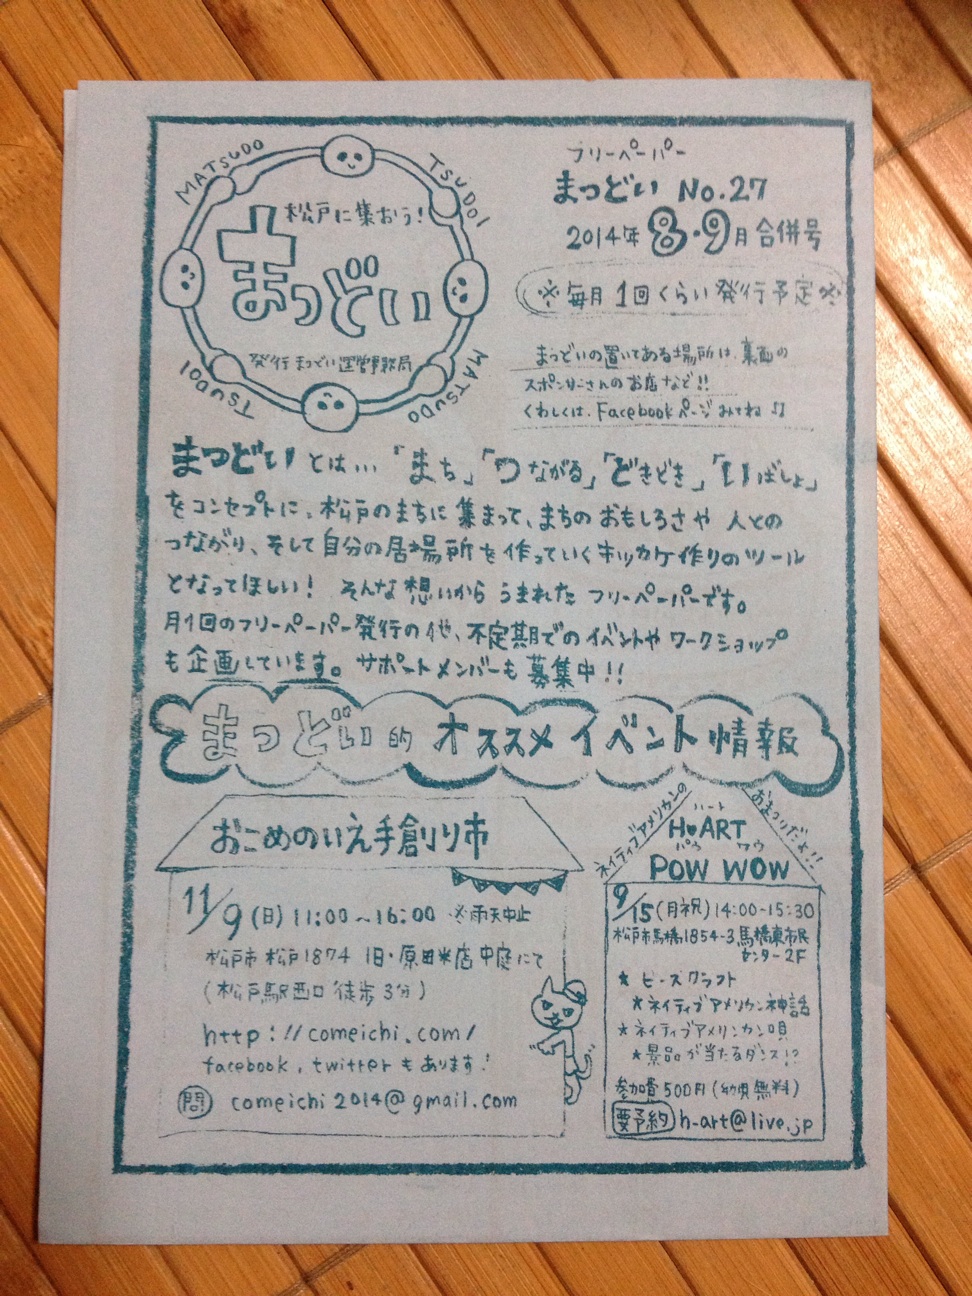 MATSUDO
TSUDOI
MATSUDO
TSUDOI
松戸に集おう!
まつどい
発行 まつどい運営事務局
フリーペーパー
まつどい No.27
2014年 8・9月 合併号
※毎月 1回くらい発行予定※
まつどいの置いてある場所は、裏面の
スポンサーさんのお店など!!
くわしくは、Facebookページみてね♫
まつどいとは… 「まち」「つながる」「どきどき」「いばしょ」
をコンセプトに、松戸のまちに集まって、まちのおもしろさや 人との
つながり、そして自分の居場所を作っていくキッカケ作りのツール
となってほしい! そんな想いから うまれた フリーペーパーです。
月1回のフリーペーパー発行の他、不定期でのイベントや ワークショップ
も企画しています。サポートメンバーも募集中!!
まつどい的 オススメイベント情報
おこめのいえ手創り市
11/9(日)11:00~16:00 ※雨天中止
松戸市松戸1874 旧・原田米店中庭にて
(松戸駅西口 徒歩3分)
http://comeichi.com/
facebook, twitterもあります!
問 comeichi2014@gmail.com
ネイティブアメリカンの
おまつりだよ!!
ハート
H♥ART
パウ ワウ
POW WOW
9/15(月祝)14:00-15:30
松戸市馬橋1854-3 馬橋東市民
センター2F
★ ビーズクラフト
★ネイティブアメリカン神話
★ネイティブアメリカン唄
★景品が当たるダンス!?
参加費500円(幼児無料)
要予約 h-art@live.jp